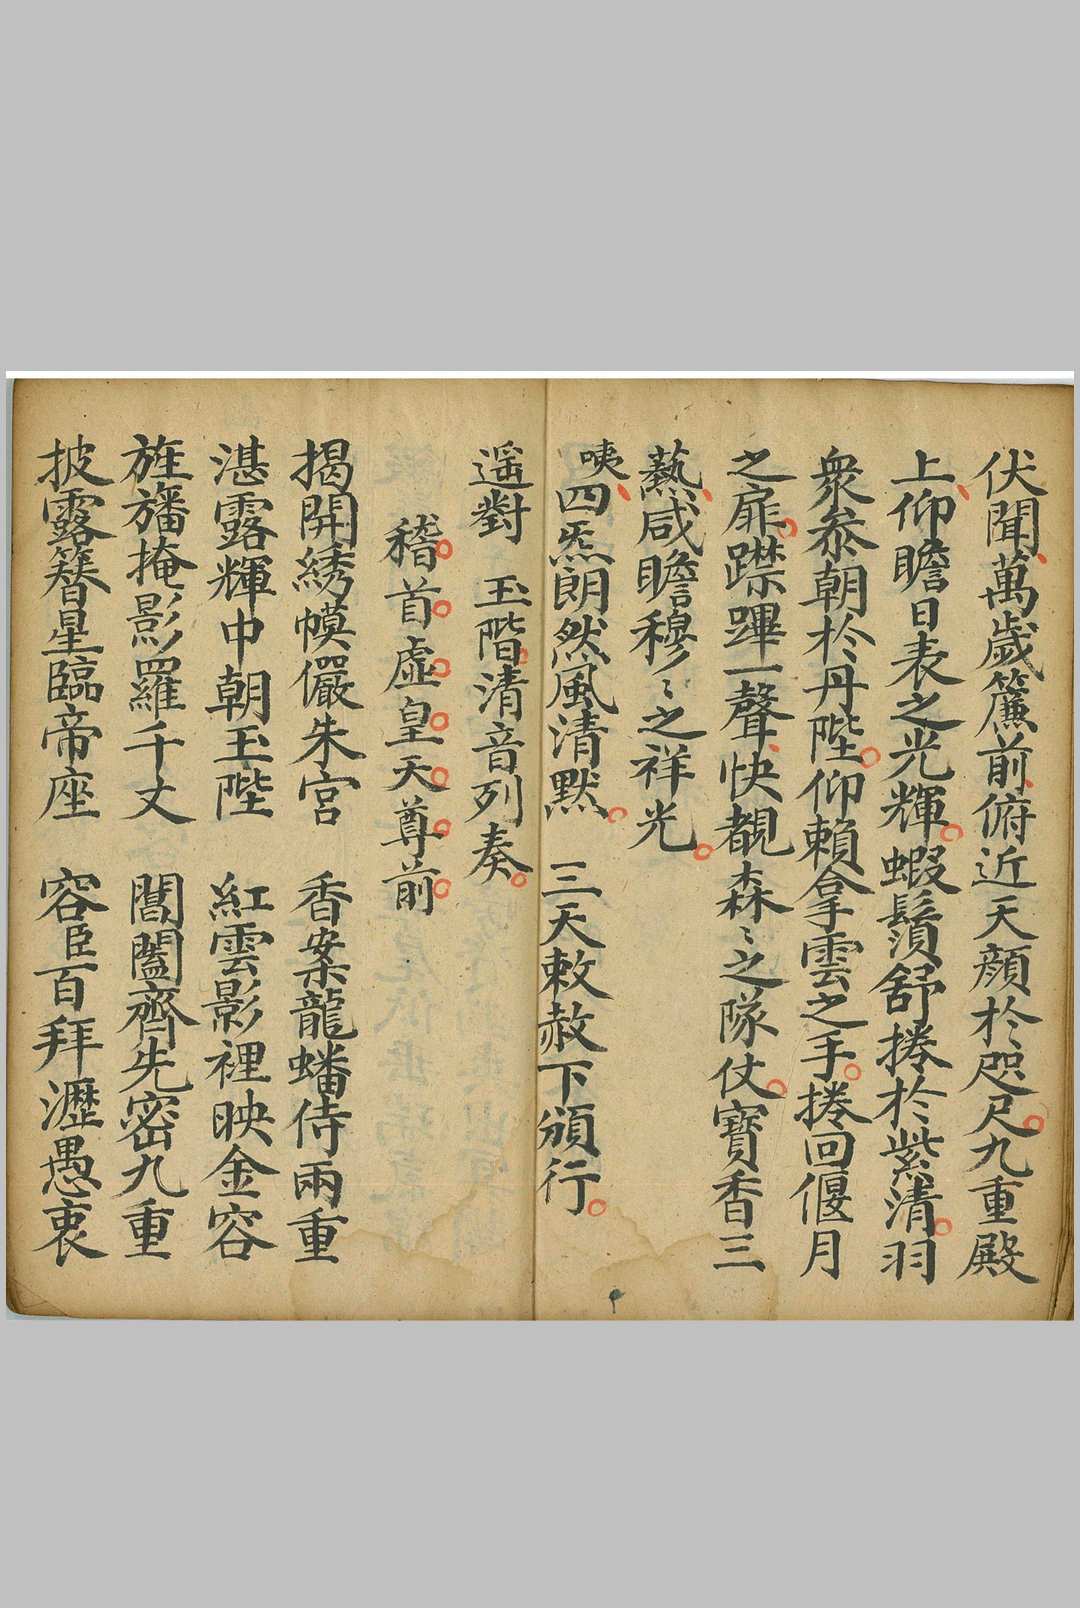 伏聞萬歲簾前俯近天顏於咫尺九重殿
上仰瞻日表之光輝蝦鬚舒捲於紫清羽
衆叅朝於丹陛仰賴拿雲之手捲回偃月
之扉躒蹕一聲快覩森〻之隊仗寶香三
爇咸瞻穆〻之祥光
咦四炁朗然風清默 三天敕赦下頒行
遥對 玉階清音列奏
稽首虛皇天尊前
揭開綉幙儼朱宮 香案龍蟠侍兩重
湛露輝中朝玉陛 紅雲影裡映金容
旌旛掩影羅千丈 閶闔齊先密九重
披露簪星臨帝座 容臣百拜瀝愚衷